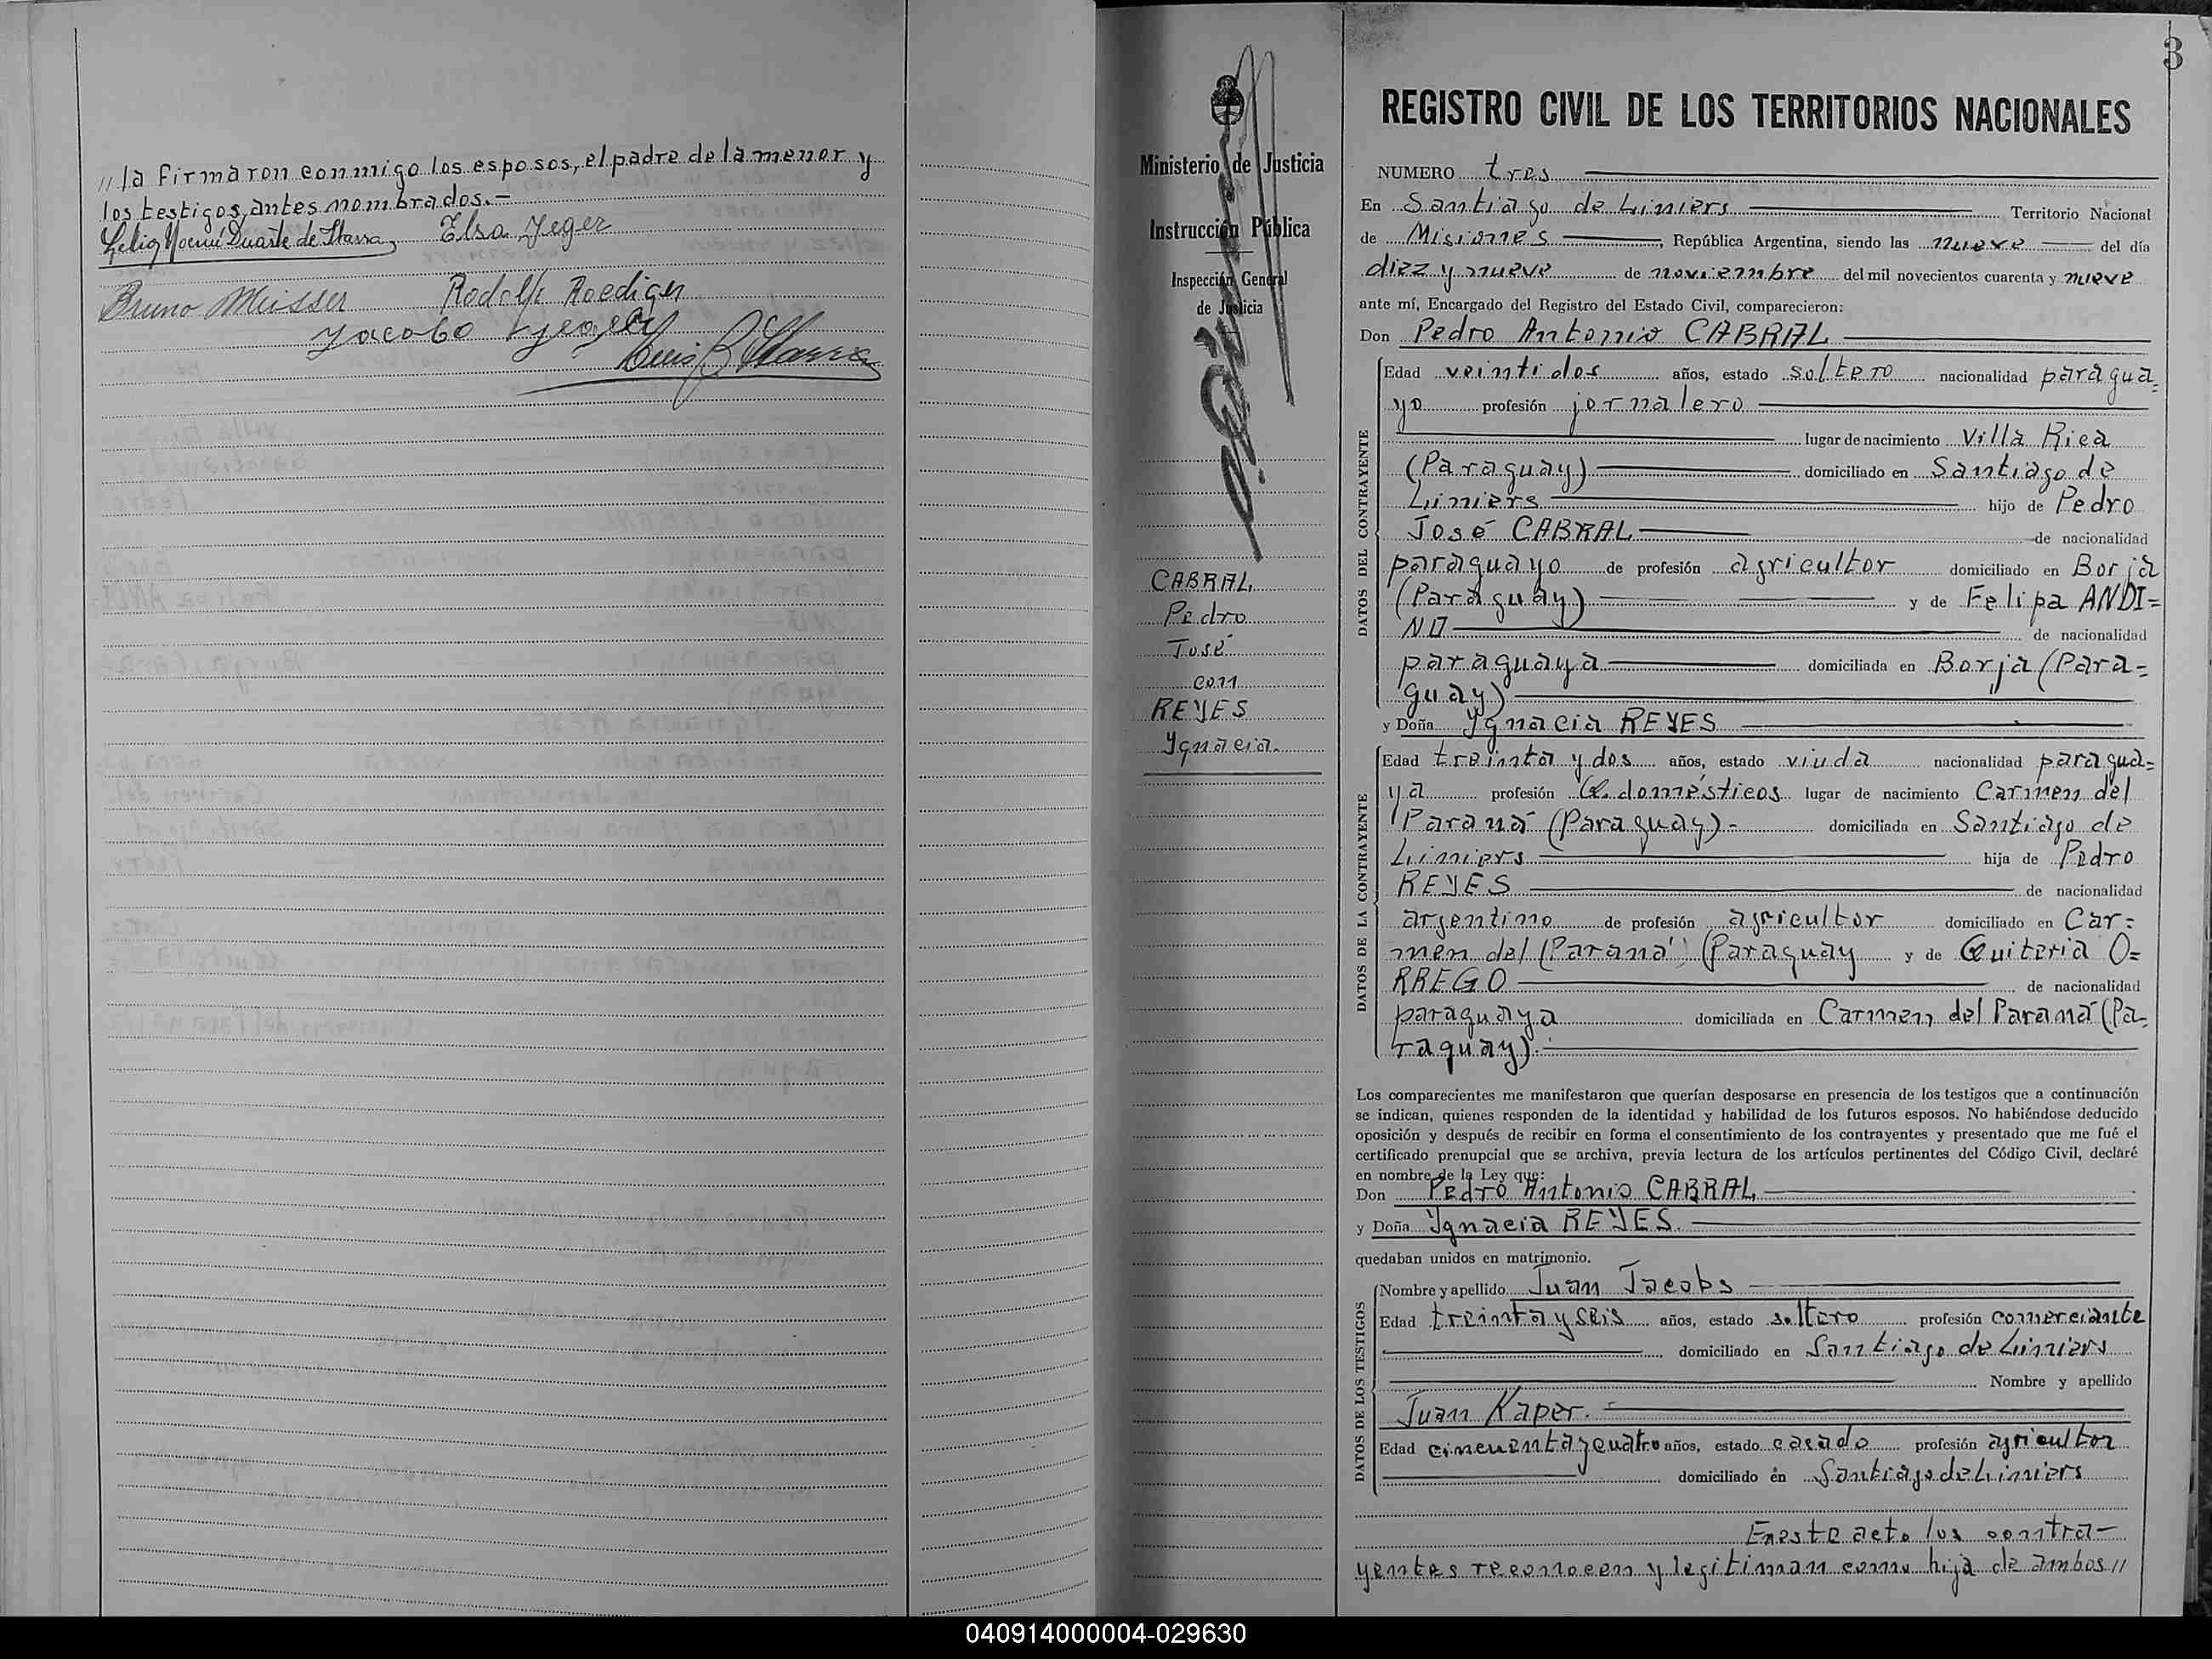 // la firmaron conmigo los esposos, el padre de la menor y
los testigos, antes nombrados.-
Elsa Jeger
Bruno Meisser Rodolfo Roediger
Jacobo
Ministerio de Justicia
Instrucción Pública
Inspección General
de Justicia
CABRAL
Pedro
José
con
REYES
Ygnacia.
3
REGISTRO CIVIL DE LOS TERRITORIOS NACIONALES
NUMERO tres
En Santiago de Liniers Territorio Nacional
de Misiones, República Argentina, siendo las nueve del día
diez y nueve de noviembre del mil novecientos cuarenta y nueve
ante mí, Encargado del Registro del Estado Civil, comparecieron:
Don Pedro Antonio CABRAL
DATOS DEL CONTRAYENTE
Edad veintidos años, estado soltero nacionalidad paragua=
yo profesión jornalero
lugar de nacimiento Villa Rica
(Paraguay) domiciliado en Santiago de
Liniers hijo de Pedro
José CABRAL de nacionalidad
paraguayo de profesión agricultor domiciliado en Borja
(Paraguay) y de Felipa ANDI=
NO de nacionalidad
paraguaya domiciliada en Borja (Para=
guay)
y Doña Ygnacia REYES
DATOS DE LA CONTRAYENTE
Edad treinta y dos años, estado viuda nacionalidad paragua=
ya profesión Q. domésticos lugar de nacimiento Carmen del
Paraná (Paraguay)- domiciliada en Santiago de
Liniers hija de Pedro
REYES de nacionalidad
argentino de profesión agricultor domiciliado en Car=
men del (Paraná) (Paraguay y de Quiteria O=
RREGO de nacionalidad
paraguaya domiciliada en Carmen del Paraná (Pa-
raguay).
Los comparecientes me manifestaron que querían desposarse en presencia de los testigos que a continuación
se indican, quienes responden de la identidad y habilidad de los futuros esposos. No habiéndose deducido
oposición y después de recibir en forma el consentimiento de los contrayentes y presentado que me fué el
certificado prenupcial que se archiva, previa lectura de los artículos pertinentes del Código Civil, declaré
en nombre de la Ley que:
Don Pedro Antonio CABRAL
y Doña Ygnacia REYES.
quedaban unidos en matrimonio.
DATOS DE LOS TESTIGOS
Nombre y apellido Juan Jacobs
Edad treinta y seis años, estado soltero profesión comerciante
domiciliado en Santiago de Liniers
Nombre y apellido
Juan Kaper.
Edad cincuenta y cuatro años, estado casado profesión agricultor
domiciliado en Santiago de Liniers
En este acto los contra-
yentes reconocen y legitiman como hija de ambos //
040914000004-029630